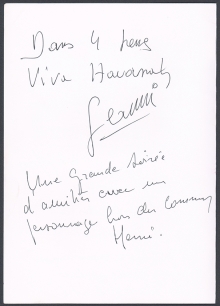 Dans 4 hens
Viva Havanah
Une Grande soirée
d'amitiés avec un
personnage hors du commun
Henri.